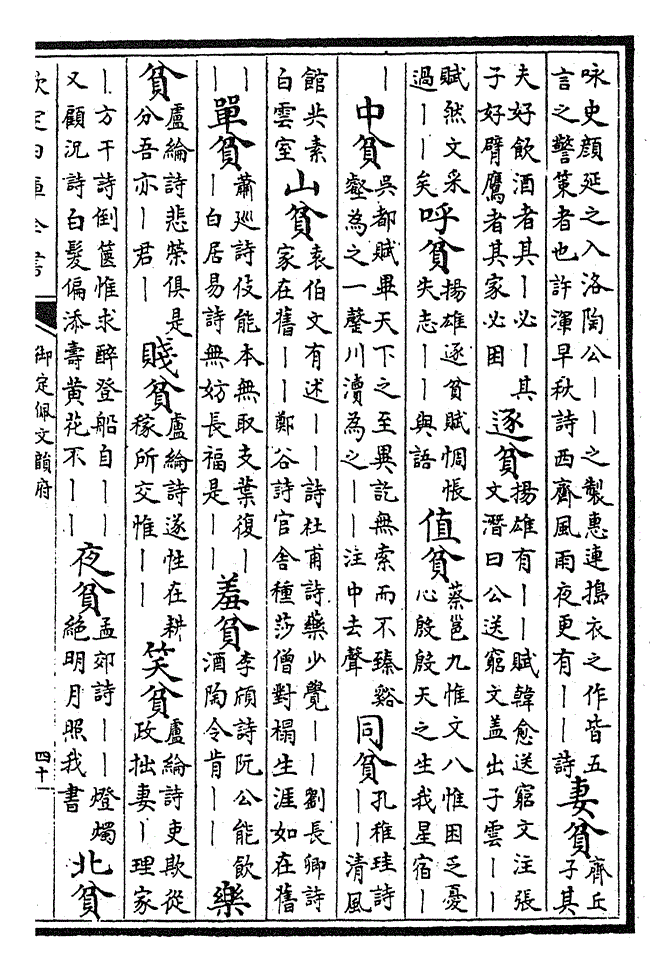 咏史顔延之入洛陶公｜｜之製惠連擣衣之作皆五
言之警策者也許渾早秋詩西齋風雨夜更有｜｜詩
妻貧
齊丘
子其
夫好飲酒者其｜必｜其
子好臂鷹者其家必困
逐貧
揚雄有｜｜賦韓愈送窮文注張
文潛曰公送窮文盖出子雲｜｜
賦然文采
過｜｜矣
呼貧
揚雄逐貧賦惆悵
失志｜｜與語
值貧
蔡邕九惟文八惟困乏憂
心殷殷天之生我星宿｜
｜
中貧
吳都賦畢天下之至異訖無索而不臻谿
壑為之一罄川瀆為之｜｜注中去聲
同貧
孔稚珪詩
｜｜清風
館共素
白雲室
山貧
袁伯文有述｜｜詩杜甫詩藥少覺｜｜劉長卿詩
家在舊｜｜鄭谷詩官舍種莎僧對榻生涯如在舊
｜
｜
單貧
蕭廵詩伎能本無取支葉復｜
｜白居易詩無妨長福是｜｜
羞貧
李頎詩阮公能飲
酒陶令肯｜｜
樂
貧
盧綸詩悲榮俱是
分吾亦｜君｜
賤貧
盧綸詩遂性在耕
稼所交惟｜｜
笑貧
盧綸詩吏欺從
政拙妻｜理家
｜方干詩倒篋惟求醉登船自｜｜
又顧況詩白髮偏添壽黄花不｜｜
夜貧
孟郊詩｜｜燈燭
絕明月照我書
北貧
欽定四庫全書
御定佩文韻府
四十一